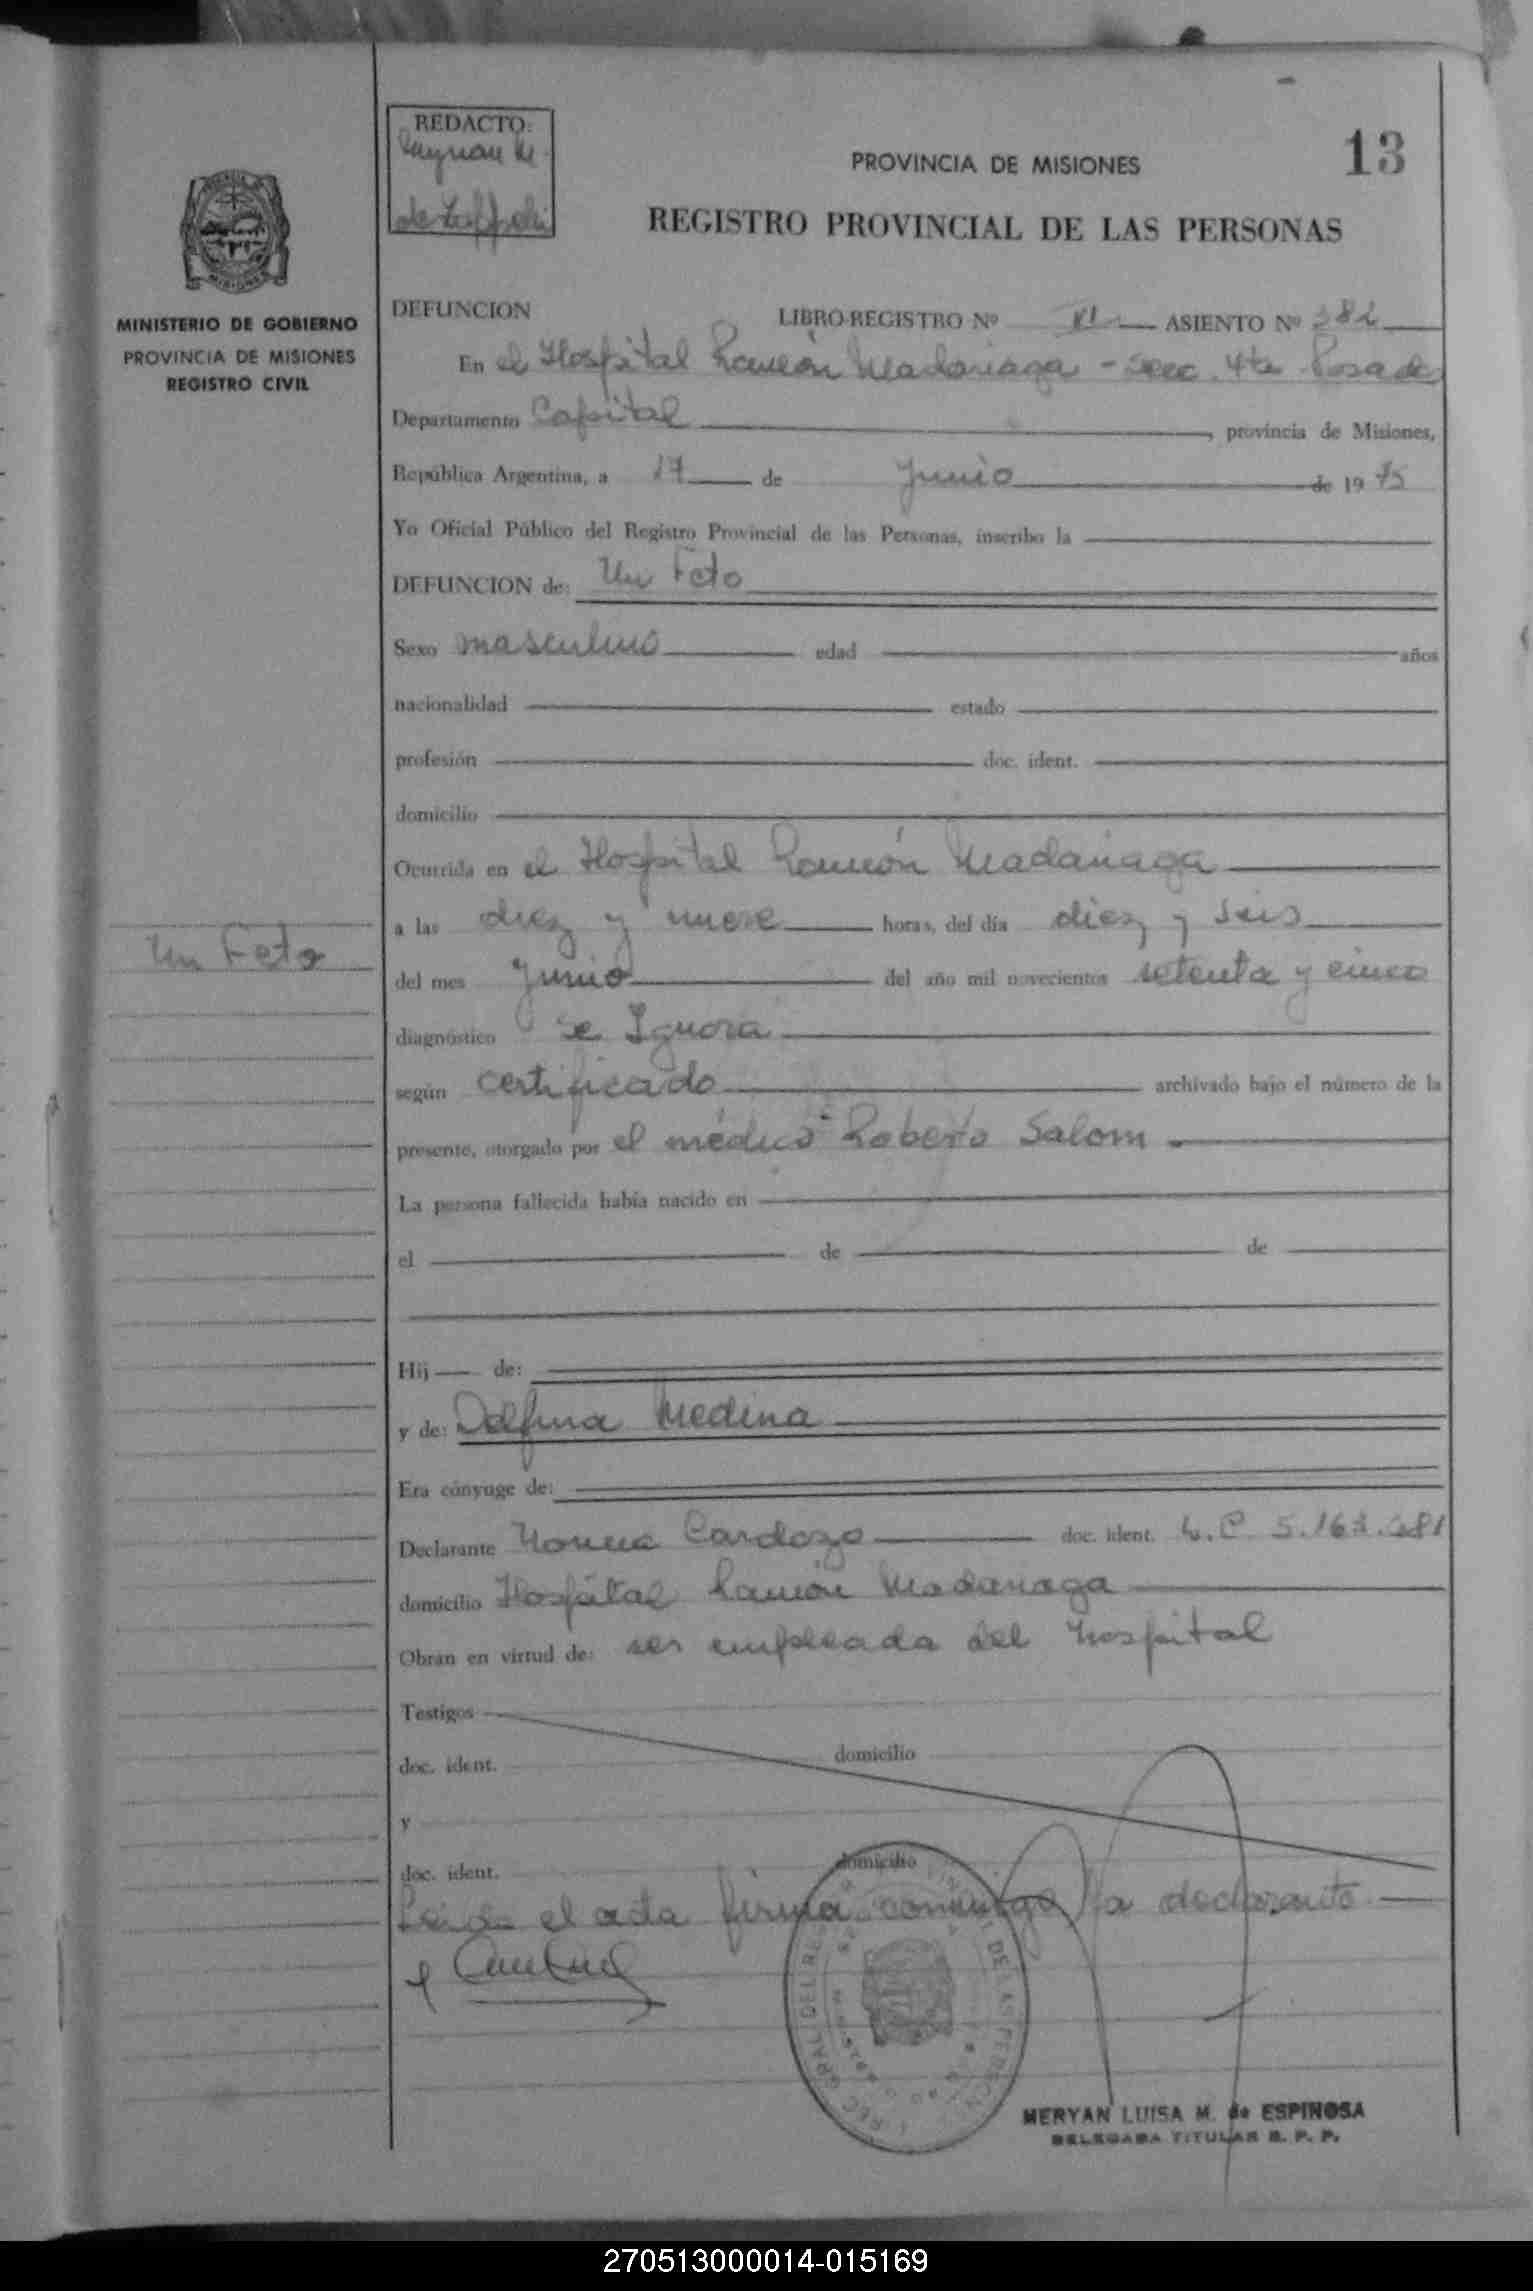 REDACTO:
de
PROVINCIA DE MISIONES
13
REGISTRO PROVINCIAL DE LAS PERSONAS
MINISTERIO DE GOBIERNO
PROVINCIA DE MISIONES
REGISTRO CIVIL
DEFUNCION LIBRO-REGISTRO Nº ASIENTO Nº 382
En el Hospital Ramón Madariaga - Secc. 4ta Posadas
Departamento Capital, provincia de Misiones,
República Argentina, a 17 de Junio de 1975
Yo Oficial Público del Registro Provincial de las Personas, inscribo la
DEFUNCION de: Un Feto
Sexo masculino edad años
nacionalidad estado
profesión doc. ident.
domicilio
Ocurrida en el Hospital Ramón Madariaga
a las diez y nueve horas, del día diez y seis
Un Feto
del mes Junio del año mil novecientos setenta y cinco
diagnóstico Se Ignora
según certificado archivado bajo el número de la
presente, otorgado por el médico Roberto Salom.
La persona fallecida había nacido en
el de de
Hij de:
y de: Delfina Medina
Era cónyuge de:
Declarante Norma Cardozo doc. ident. L.C 5.163.
domicilio Hospital Ramón Madariaga
Obran en virtud de: ser empleada del hospital
Testigos
doc. ident. domicilio
y
doc. ident. domicilio
Leida el acta firma conmigo la declarante
MERYAN LUISA M. de ESPINOSA
DELEGADA TITULAR R. P. P.
270513000014-015169